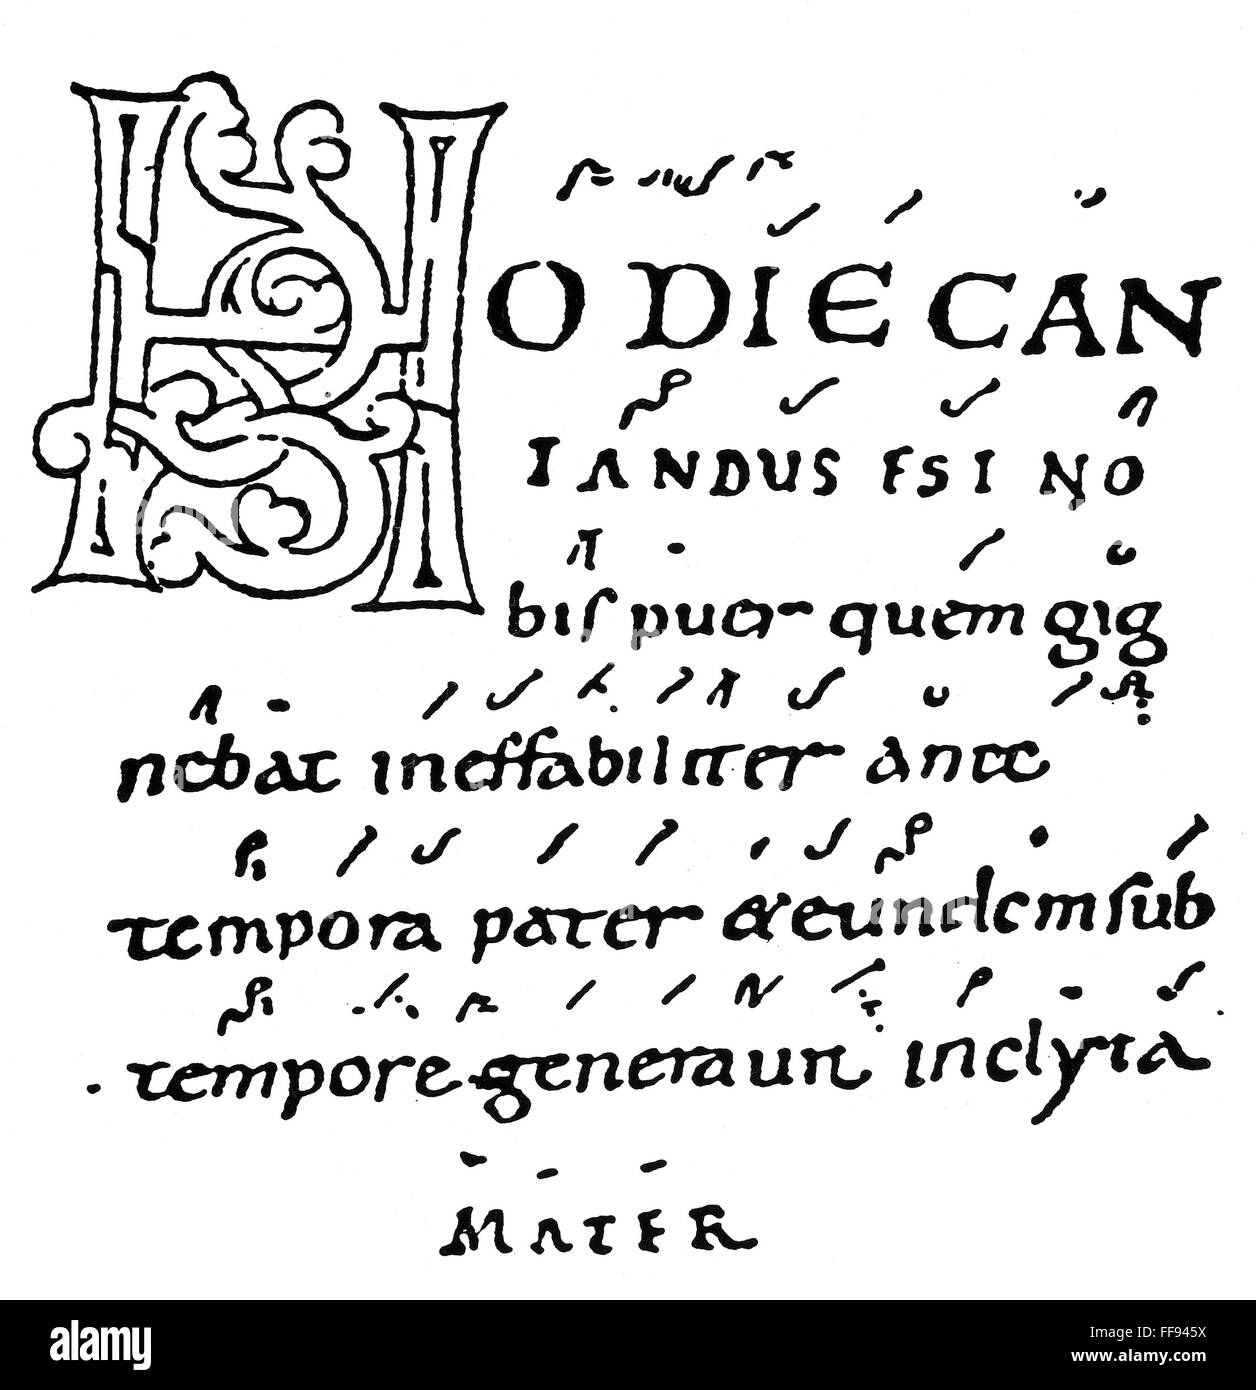 HODIE CAN
TANDUS EST NO
bis puer quem gig
nebat ineffabiliter ante
tempora pater & eundem sub
. tempore generauit inclyta
MATER
alamy stock photo
alamy
Image ID: FF945X
www.alamy.com